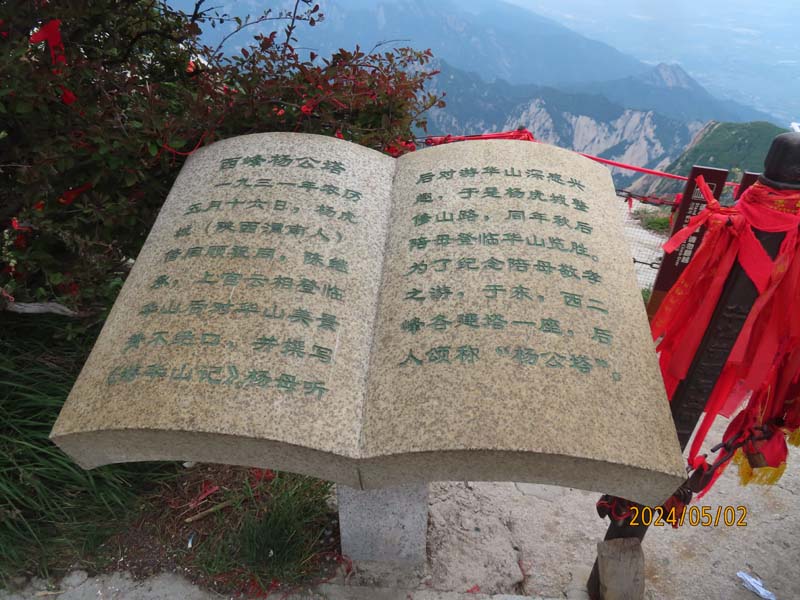 西峰杨公塔
一九三一年农历
五月十六日，杨虎
城（陕西渭南人）
偕同顾祝同，陈继
承，上官云相登临
华山后对华山美景
赞不绝口，并撰写
《游华山记》。杨母听
后对游华山深感兴
趣，于是杨虎城整
修山路，同年秋后
陪母登临华山览胜。
为了纪念陪母敬孝
之游，于东，西二
峰各建塔一座，后
人颂称“杨公塔”。
2024/05/02